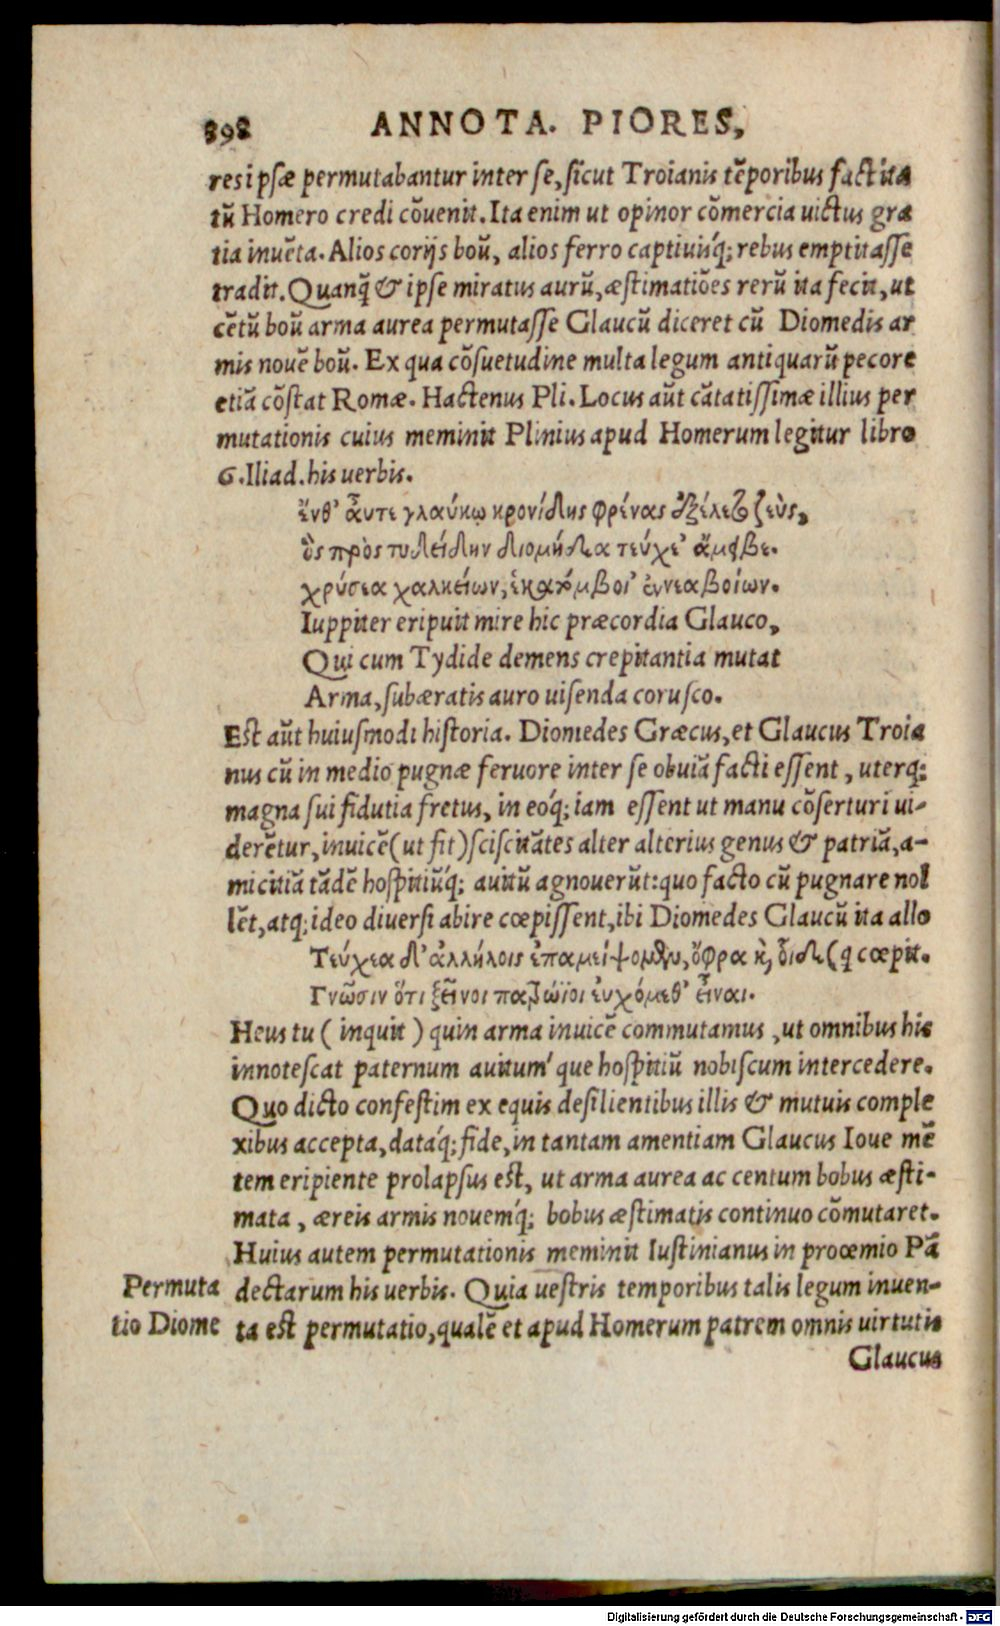 898 ANNOTA. PIORES,
res ipsæ permutabantur inter se, sicut Troianis tẽporibus factita
tũ Homero credi cõuenit. Ita enim ut opinor cõmercia uictus gra
tia inuẽta. Alios corijs boũ, alios ferro captiuisq́; rebus emptitasse
tradit. Quanq̃ & ipse miratus aurũ, æstimatiões rerũ ita fecit, ut
cẽtũ boũ arma aurea permutasse Glaucũ diceret cũ Diomedis ar
mis nouẽ boũ. Ex qua cõsuetudine multa legum antiquarũ pecore
etiã cõstat Romæ. Hactenus Pli. Locus aũt cãtatissimæ illius per
mutationis cuius meminit Plinius apud Homerum legitur libro
6. Iliad. his uerbis.
ἔνθ' ἆυτε γλαύκῳ κρονίδης φρένας ἐξέλετο ζεὺς,
ὃς πρὸς τυδείδην διομήδεα τεύχε' ἄμειβε.
χρύσεα χαλκείων, ἑκατόμβοι' ἐννεαβοίων.
Iuppiter eripuit mire hic præcordia Glauco,
Qui cum Tydide demens crepitantia mutat
Arma, subæratis auro uisenda corusco.
Est aũt huiusmodi historia. Diomedes Græcus, et Glaucus Troia
nus cũ in medio pugnæ feruore inter se obuiã facti essent, uterq;
magna sui fidutia fretus, in eóq; iam essent ut manu cõserturi ui-
derẽtur, inuicẽ (ut fit) sciscitãtes alter alterius genus & patriã, a-
micitiã tãdẽ hospitiũq́; auitũ agnouerũt: quo facto cũ pugnare nol
lẽt, atq; ideo diuersi abire cœpissent, ibi Diomedes Glaucũ ita allo
Τεύχεα δ' ἀλλήλοις ἐπαμείψομεν, ὄφρα κ̀, ὅιδε (q cœpit.
Γνῶσιν ὅτι ξεῖνοι πατρώϊοι ἐυχόμεθ' εἶναι.
Heus tu ( inquit ) quin arma inuicẽ commutamus, ut omnibus his
innotescat paternum auitum'que hospitiũ nobiscum intercedere.
Quo dicto confestim ex equis desilientibus illis & mutuis comple
xibus accepta, dataq́; fide, in tantam amentiam Glaucus Ioue mẽ
tem eripiente prolapsus est, ut arma aurea ac centum bobus æsti-
mata, æreis armis nouemq́; bobus æstimatis continuo cõmutaret.
Huius autem permutationis meminit Iustinianus in proœmio Pã
Permuta dectarum his uerbis. Quia uestris temporibus talis legum inuen-
tio Diome ta est permutatio, qualẽ et apud Homerum patrem omnis uirtutis
Glaucus
Digitalisierung gefördert durch die Deutsche Forschungsgemeinschaft - DFG